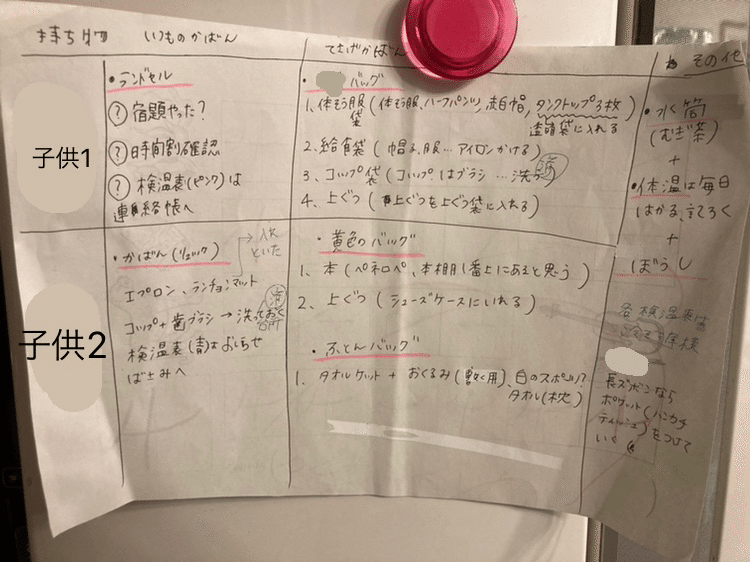 持ち物
いつものかばん
てさげかばん
その他
子供1
・ランドセル
? 宿題やった?
? 時間割確認
? 検温表(ピンク)は
連絡帳へ
・バッグ
1、体そう服袋(体そう服、ハーフパンツ、赤白帽、タンクトップ3枚)
透明袋に入れる
2、給食袋(帽子、服…アイロンかける)
3、コップ袋(コップ、はブラシ…洗う) 済
4、上ぐつ(上ぐつを上ぐつ袋に入れる)
・水筒
(むぎ茶)
+
・体温は毎日
はかる、記ろく
+
ぼうし
子供2
・かばん(リュック)
入れといた
エプロン、ランチョンマット
コップ+歯ブラシ→洗っておく 済
台所
検温表(青)はおしらせ
ばさみへ
・黄色のバッグ
1、本(ペネロペ、本棚1番上にあると思う)
2、上ぐつ(シューズケースにいれる)
・ふとんバッグ
1、タオルケット+おくるみ(敷く用)、白のスポリ?
タオル(枕)
各検温表は
長ズボンなら
ポケット(ハンカチ
ティッシュ)をつけて
いく